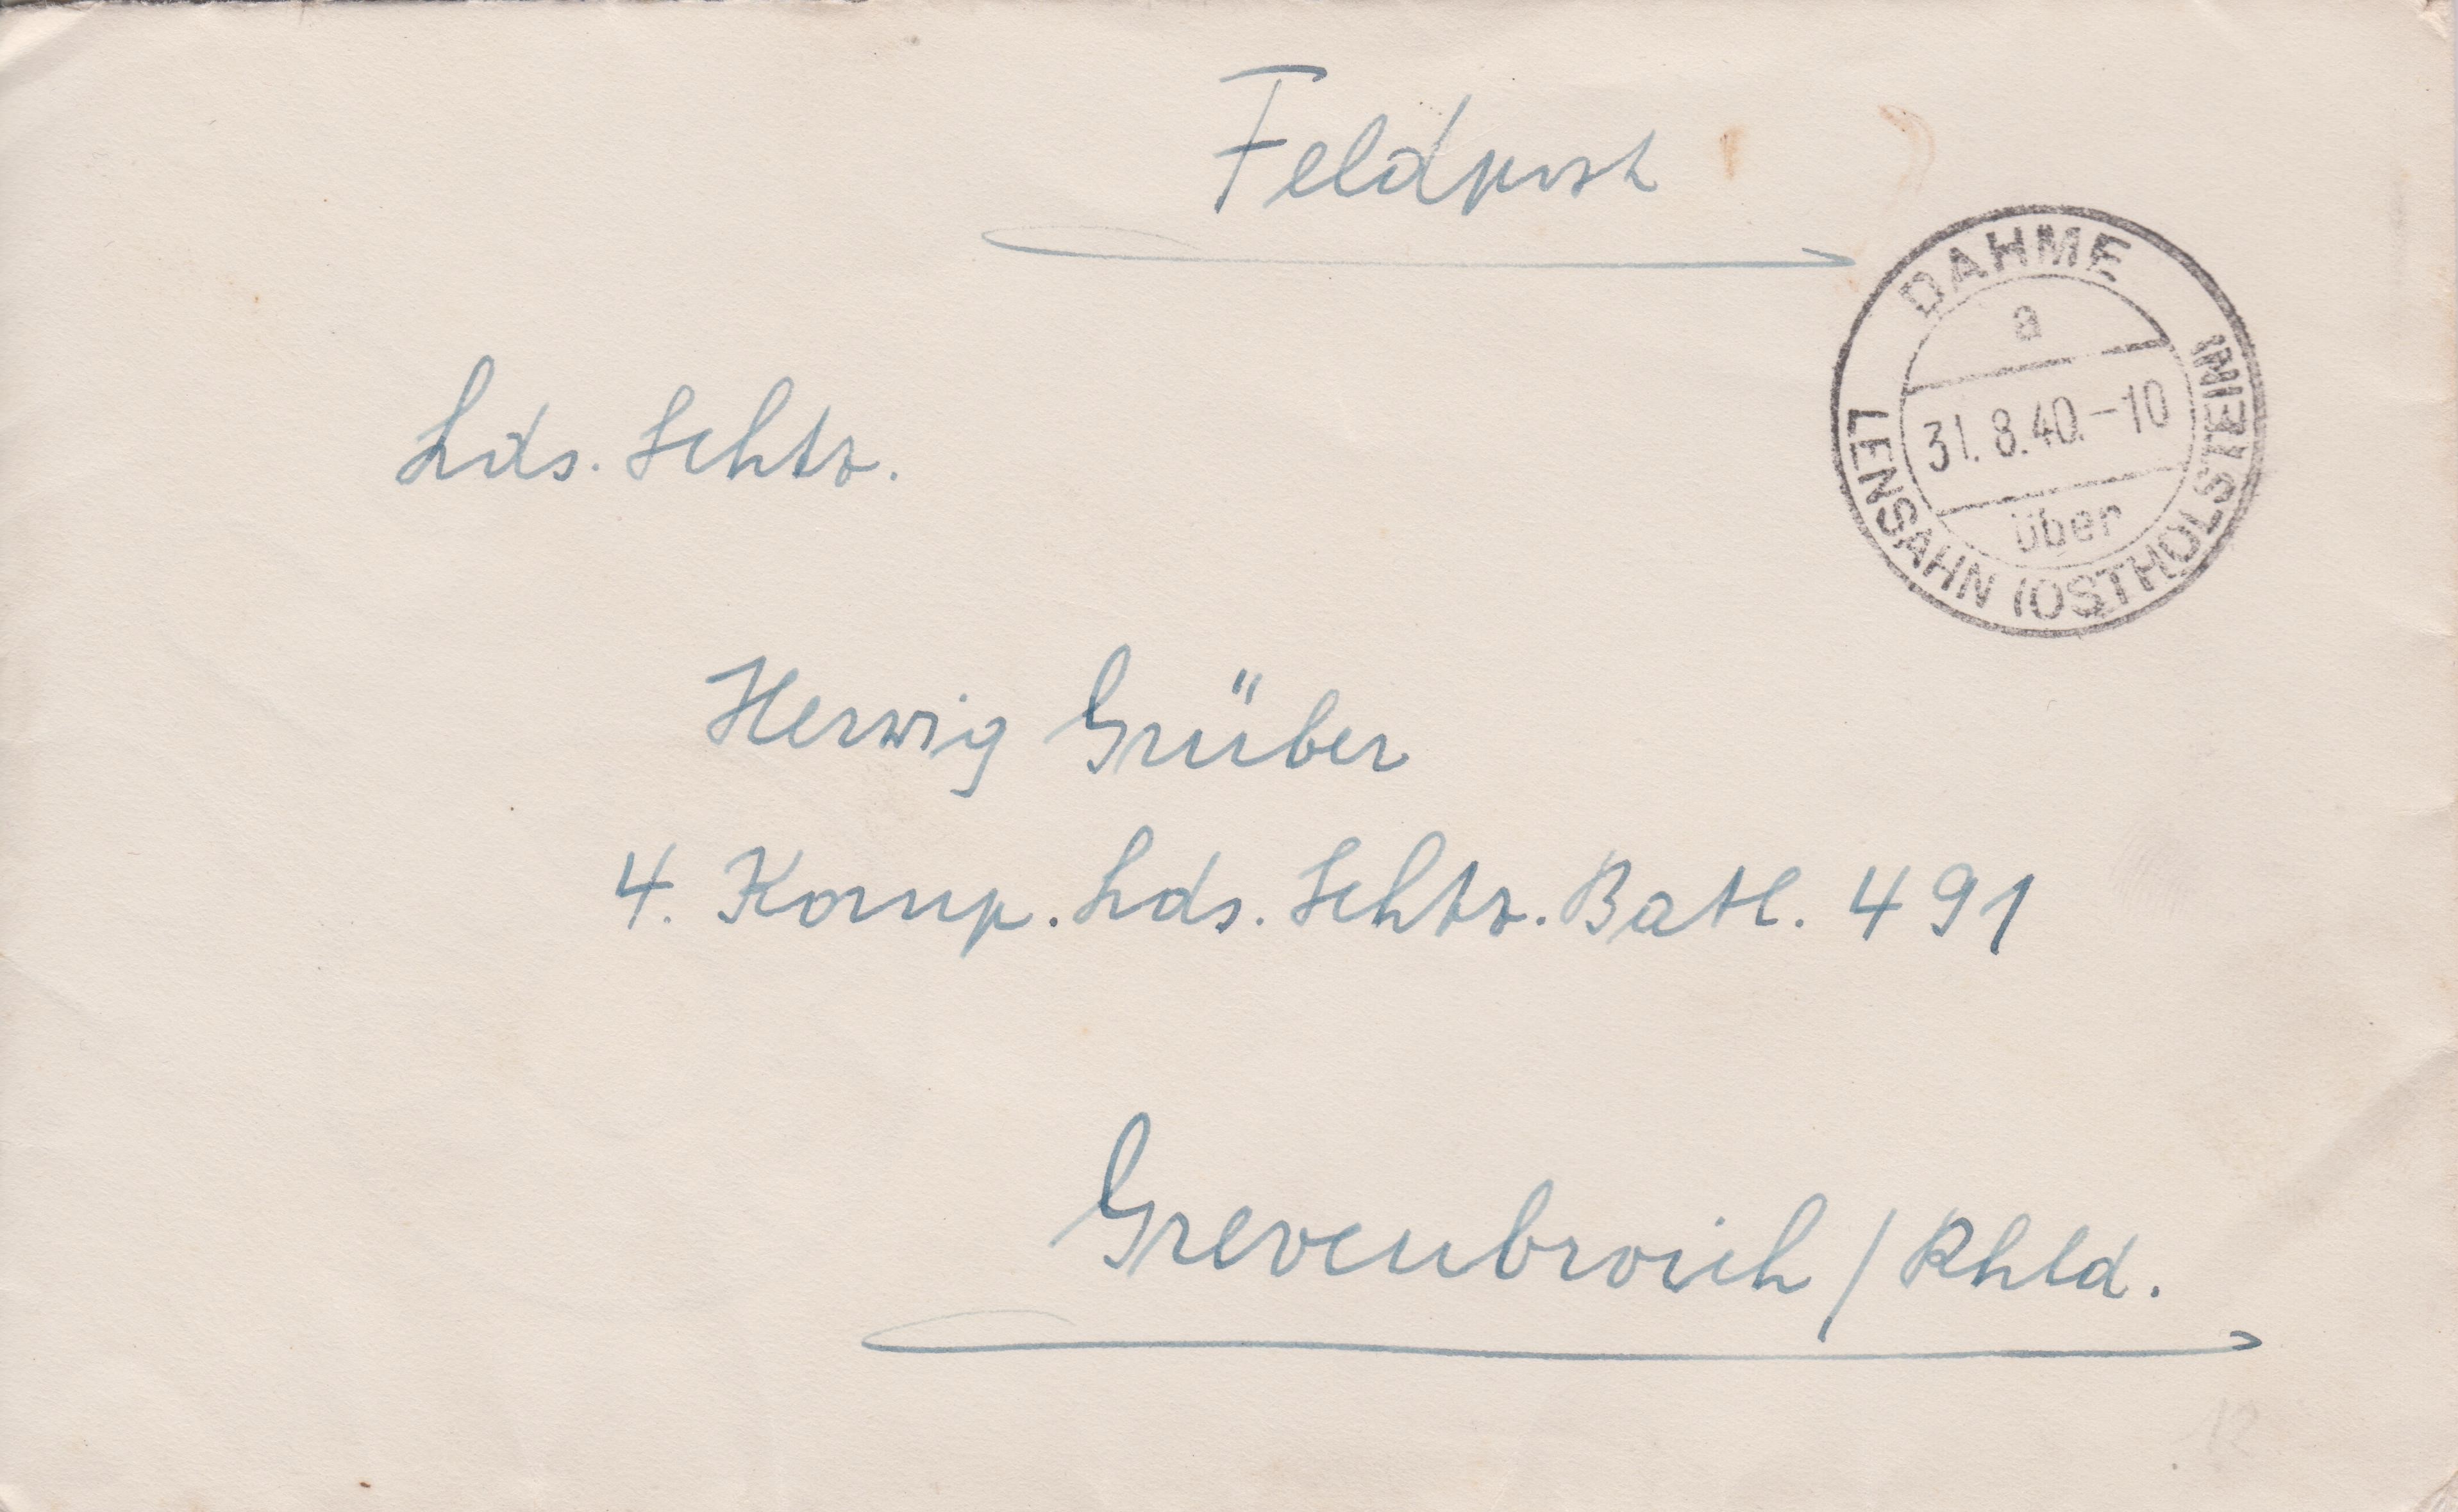 Feldpost
DAHME
a
31.8.40.-10
über
LENSAHN (OSTHOLSTEIN)
Lds. Schtz.
Herwig Grüber
4. Komp. Lds. Schtz. Batl. 491
Grevenbroich / Rhld.